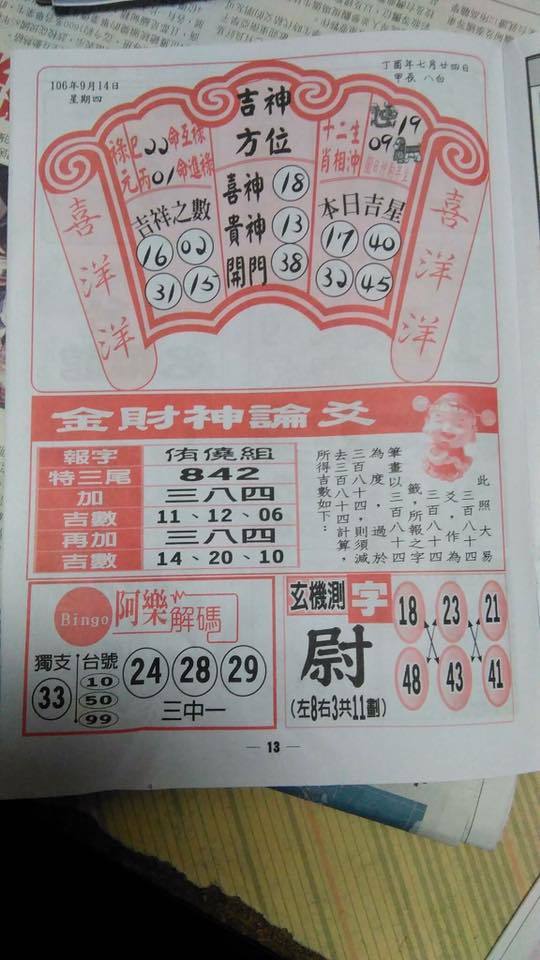 106年9月14日
星期四
丁酉年七月廿四日
甲辰 八白
吉神
方位
喜神 18
貴神 13
開門 38
祿巳00命互祿
元丙01命進祿
吉祥之數
16 02
31 15
十二生
肖相沖
逢 19
09
本日吉星
17 40
32 45
喜洋洋
喜洋洋
金財神論爻
報字 侑僥組
特三尾 842
加 三八四
吉數 11、12、06
再加 三八四
吉數 14、20、10
此照大易
三百八十四
爻，作為
三百八十四
籤，所報之字
筆畫以三百八十四
為度，過於
三百八十四，則須減
去三百八十四計算，
所得吉數如下：
Bingo 阿樂解碼
獨支 33
台號 10 50 99
24 28 29
三中一
玄機測字
尉
(左8右3共11劃)
18 23 21
48 43 41
— 13 —